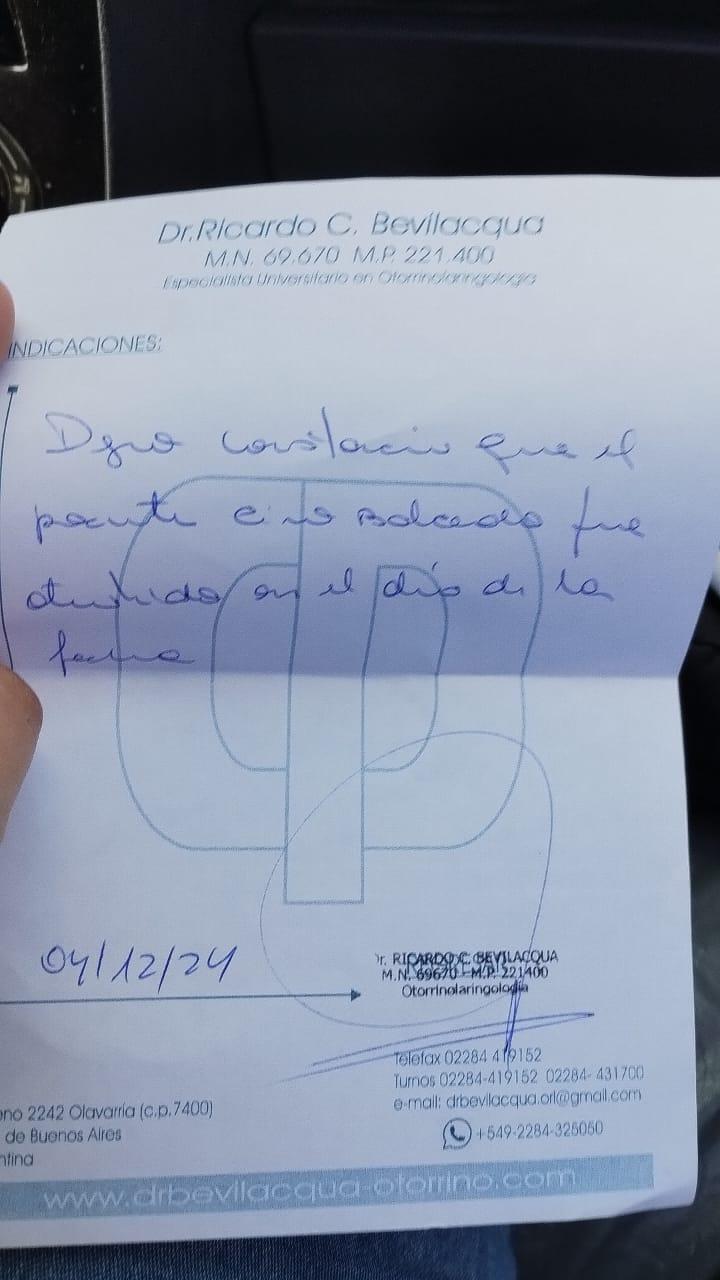 Dr.Ricardo C. Bevilacqua
M.N. 69.670 M.P. 221.400
Especialista Universitario en Otorrinolaringología
INDICACIONES:
Dejo constancia que el
paciente Salcedo fue
atendido en el día de la
fecha
04/12/24
Dr. RICARDO C. BEVILACQUA
M.N. 69670 - M.P. 221400
Otorrinolaringología
Telefax 02284 419152
Turnos 02284-419152 02284- 431700
e-mail: drbevilacqua.orl@gmail.com
+549-2284-325050
eno 2242 Olavarría (c.p.7400)
de Buenos Aires
ntina
www.drbevilacqua-otorrino.com